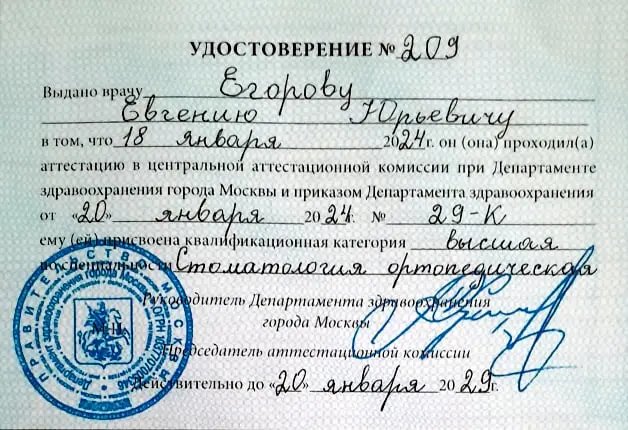 УДОСТОВЕРЕНИЕ № 209
Выдано врачу Егорову
Евгению Юрьевичу
в том, что 18 января 2024г. он (она) проходил(а)
аттестацию в центральной аттестационной комиссии при Департаменте
здравоохранения города Москвы и приказом Департамента здравоохранения
от «20» января 2024г. № 29-К
ему (ей) присвоена квалификационная категория высшая
по специальности Стоматология ортопедическая
Руководитель Департамента здравоохранения
города Москвы
М.П.
Председатель аттестационной комиссии
Действительно до «20» января 2029г.
ПРАВИТЕЛЬСТВО МОСКВЫ
Департамент здравоохранения города Москвы